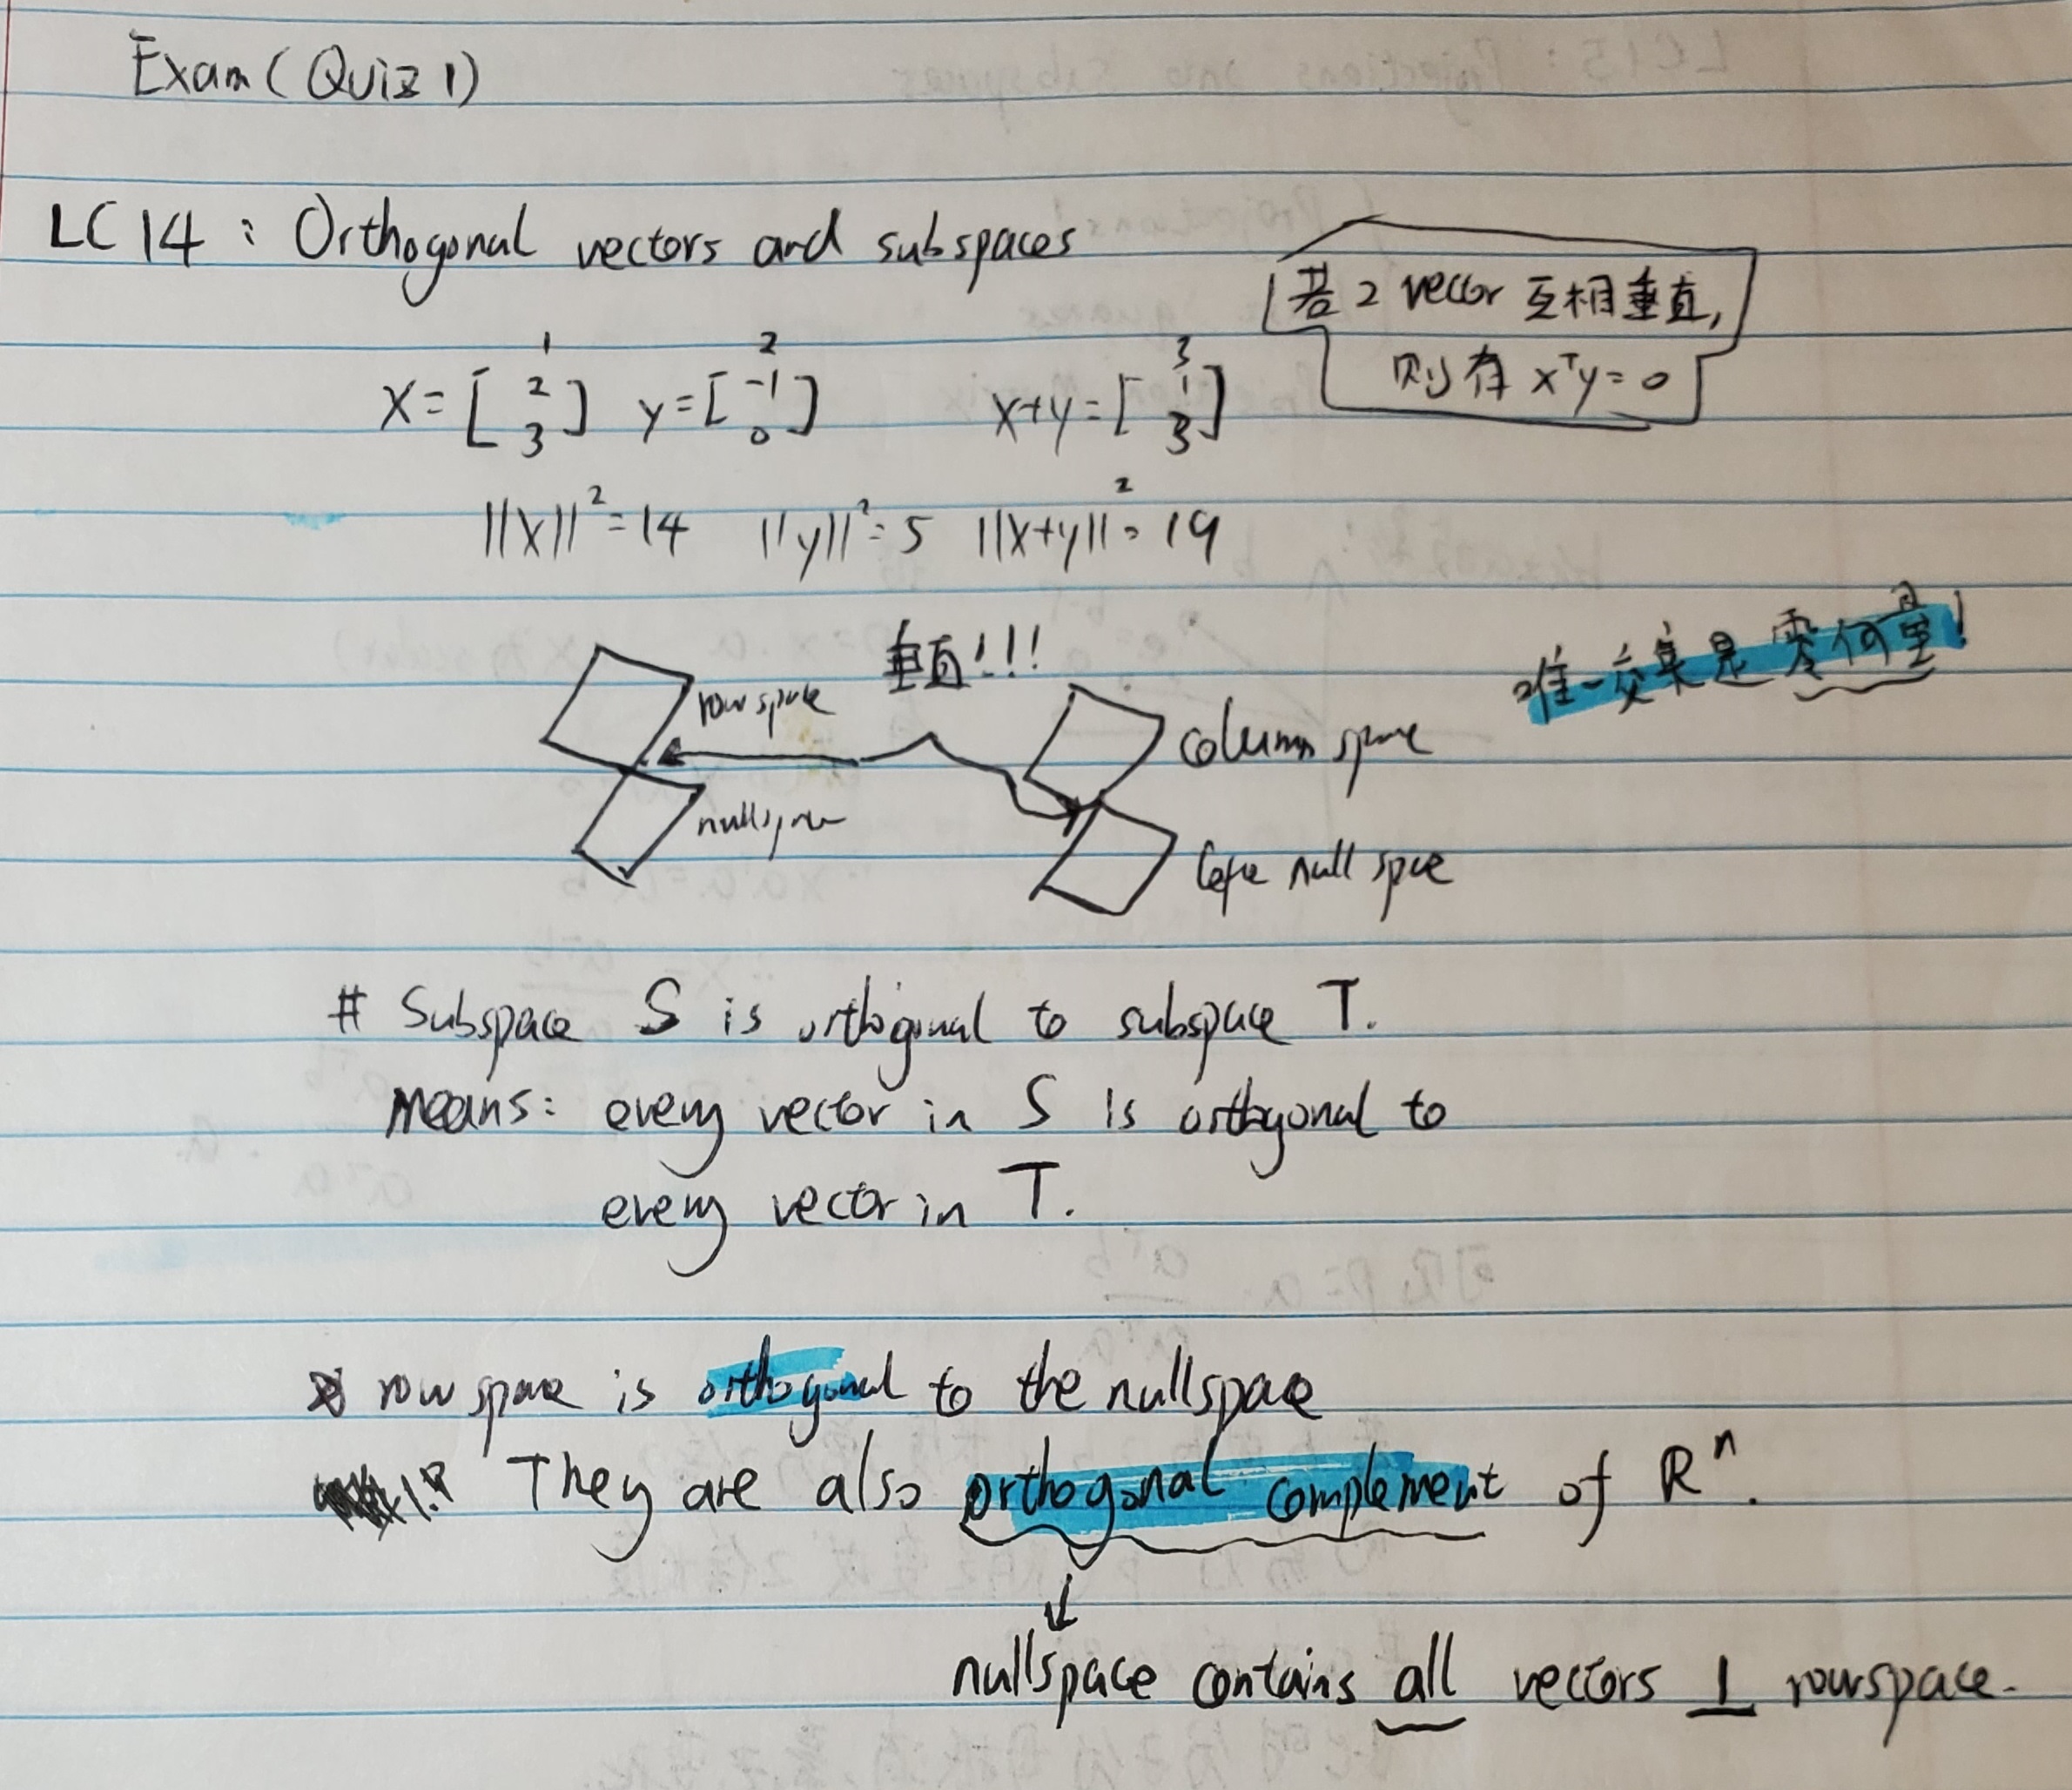 Exam (Quiz 1)
LC 14 : Orthogonal vectors and subspaces
若 2 vector 互相垂直,
则有 xᵀy = 0
X = [1 2 3] y = [2 -1 0] x+y = [3 1 3]
||X||² = 14 ||y||² = 5 ||x+y||² = 19
垂直!!!
唯一交集是零向量!
row space
column space
nullspace
left null space
# Subspace S is orthogonal to subspace T.
means: every vector in S is orthogonal to
every vector in T.
row space is orthogonal to the nullspace
They are also orthogonal complement of Rⁿ.
↓
nullspace contains all vectors ⊥ rowspace.